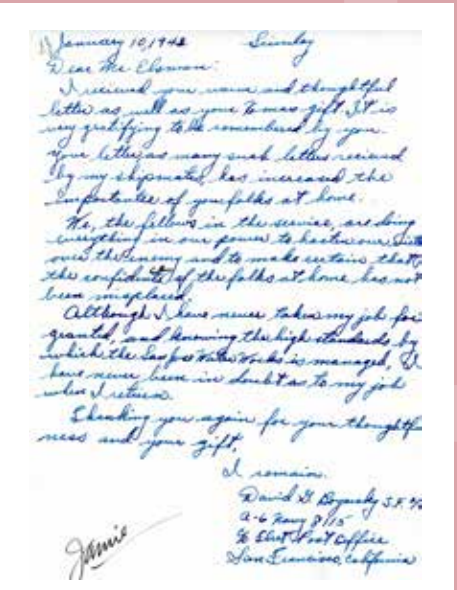 January 10, 1942 Sunday
Dear Mr
I recieved your and thoughtful
letter as well as your Xmas gift. It is
very gratifying to be remembered by you.
Your letter, as many such letters recieved
by my shipmates, has increased the
importantce of you folks at home.
We, the fellows in the service, are doing
everything in our power to hasten our
over the enemy and to make certain that
the confidence of the folks at home has not
been misplaced.
Although I have never taken my job for
granted, and knowing the high standards by
which the San Jose Water Works is managed, I
have never been in doubt as to my job
when I return.
Thanking you again for your thoughtf
ness and your gift,
I remain.
David G. S.F.
Navy
% Fleet Post Office
San Francisco, California
Jamie